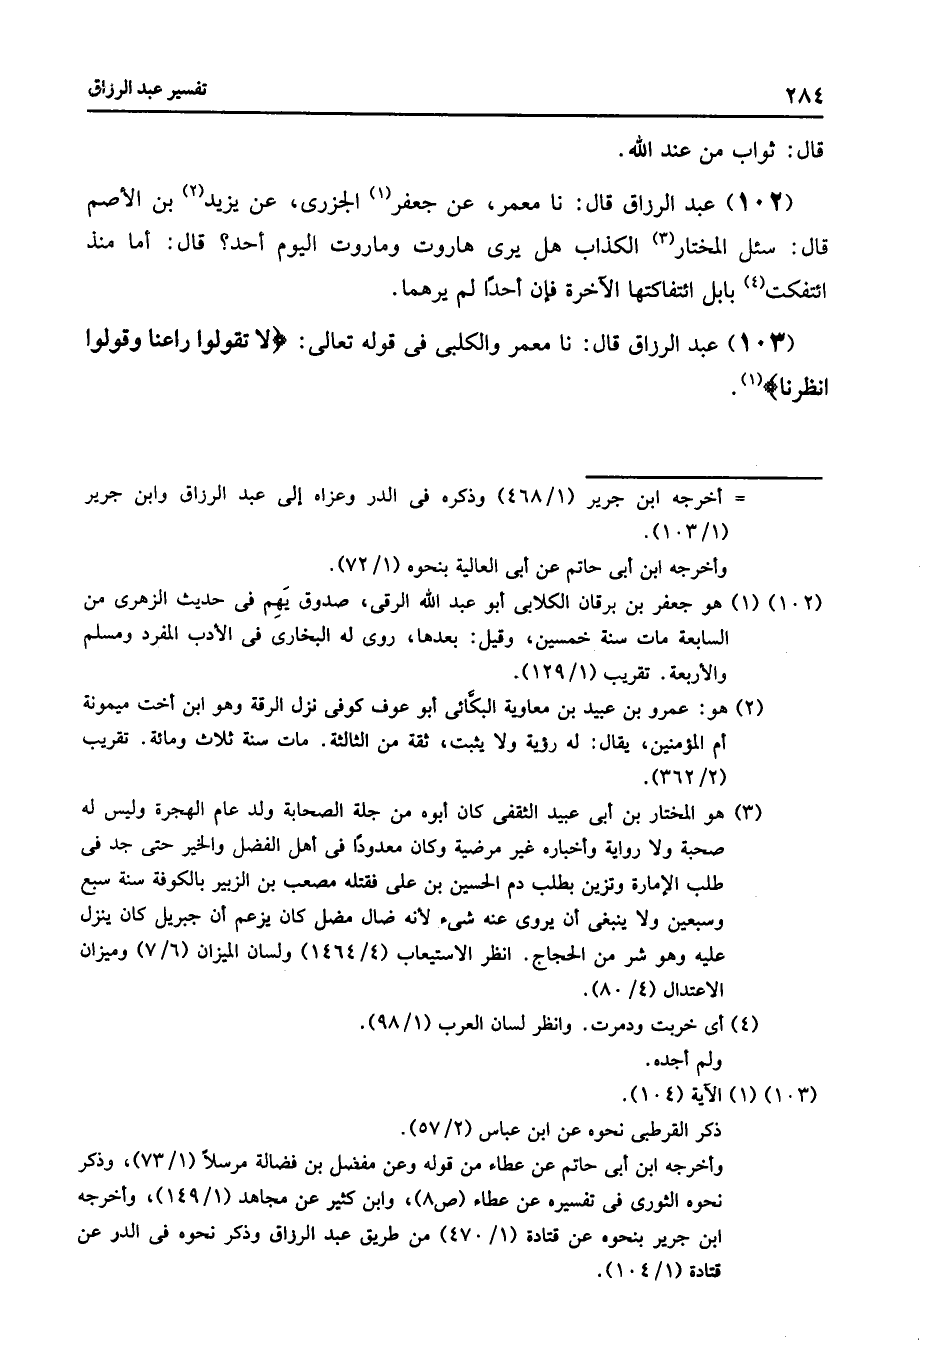 ٢٨٤ تفسير عبد الرزاق
قال: ثواب من عند الله.
(١٠٢) عبد الرزاق قال: نا معمر، عن جعفر(١) الجزرى، عن يزيد(٢) بن الأصم
قال: سئل المختار(٣) الكذاب هل يرى هاروت وماروت اليوم أحد؟ قال: أما منذ
ائتفكت(٤) بابل ائتفاكتها الآخرة فإن أحدًا لم يرهما.
(١٠٣) عبد الرزاق قال: نا معمر والكلبى فى قوله تعالى: ﴿لا تقولوا راعنا وقولوا
انظرنا﴾(١).
= أخرجه ابن جرير (٤٦٨/١) وذكره فى الدر وعزاه إلى عبد الرزاق وابن جرير
(١٠٣/١).
وأخرجه ابن أبى حاتم عن أبى العالية بنحوه (٧٢/١).
(١٠٢) (١) هو جعفر بن برقان الكلابى أبو عبد الله الرقى، صدوق يَهِم فى حديث الزهرى من
السابعة مات سنة خمسين، وقيل: بعدها، روى له البخارى فى الأدب المفرد ومسلم
والأربعة. تقريب (١٢٩/١).
(٢) هو: عمرو بن عبيد بن معاوية البكَّائى أبو عوف كوفى نزل الرقة وهو ابن أخت ميمونة
أم المؤمنين، يقال: له رؤية ولا يثبت، ثقة من الثالثة. مات سنة ثلاث ومائة. تقريب
(٣٦٢/٢).
(٣) هو المختار بن أبى عبيد الثقفى كان أبوه من جلة الصحابة ولد عام الهجرة وليس له
صحبة ولا رواية وأخباره غير مرضية وكان معدودًا فى أهل الفضل والخير حتى جد فى
طلب الإمارة وتزين بطلب دم الحسين بن على فقتله مصعب بن الزبير بالكوفة سنة سبع
وسبعين ولا ينبغى أن يروى عنه شىء لأنه ضال مضل كان يزعم أن جبريل كان ينزل
عليه وهو شر من الحجاج. انظر الاستيعاب (١٤٦٤/٤) ولسان الميزان (٧/٦) وميزان
الاعتدال (٨٠/٤).
(٤) أى خربت ودمرت. وانظر لسان العرب (٩٨/١).
ولم أجده.
(١٠٣) (١) الآية (١٠٤).
ذكر القرطبى نحوه عن ابن عباس (٥٧/٢).
وأخرجه ابن أبى حاتم عن عطاء من قوله وعن مفضل بن فضالة مرسلاً (٧٣/١)، وذكر
نحوه الثورى فى تفسيره عن عطاء (ص٨)، وابن كثير عن مجاهد (١٤٩/١)، وأخرجه
ابن جرير بنحوه عن قتادة (٤٧٠/١) من طريق عبد الرزاق وذكر نحوه فى الدر عن
قتادة (١٠٤/١).